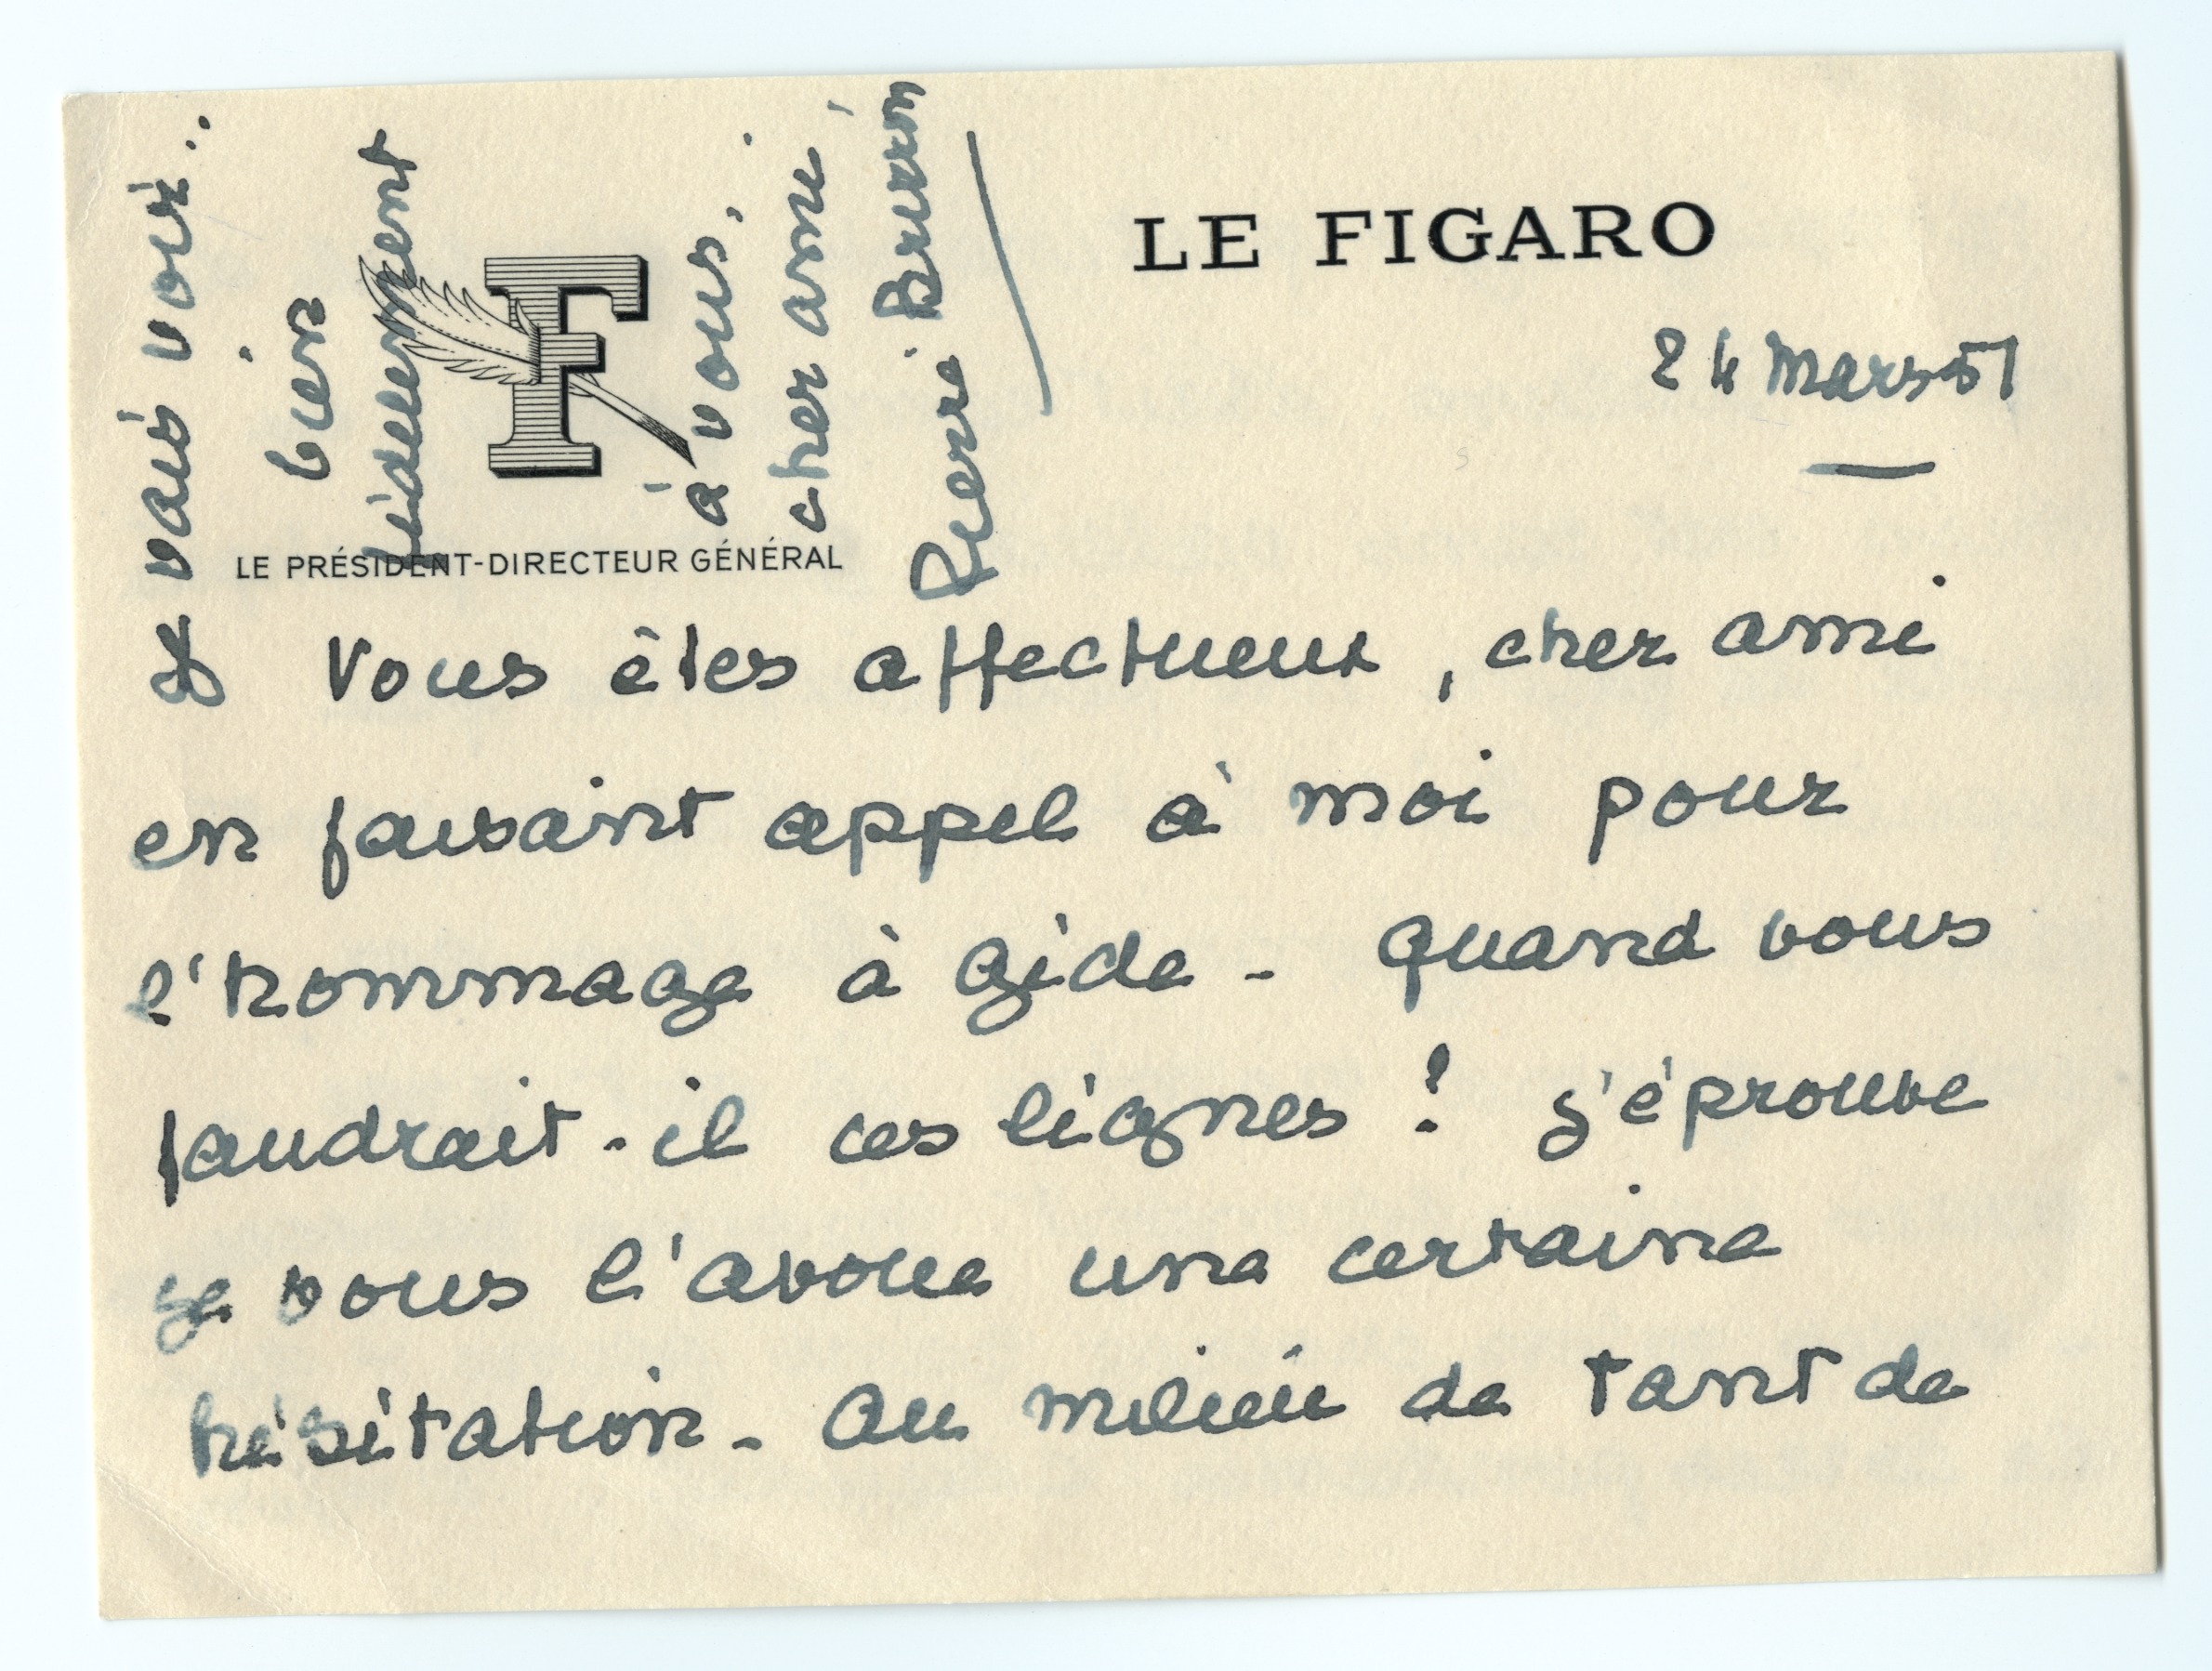 LE FIGARO
24 Mars 51
F
LE PRÉSIDENT-DIRECTEUR GÉNÉRAL
Vous êtes affectueux, cher ami
en faisant appel à moi pour
l'hommage à Gide - Quand vous
faudrait-il ces lignes ? J'éprouve
je vous l'avoue une certaine
hésitation - Au milieu de tant de
Je vais voir..
bien
fidèlement
à vous,
cher ami,
Pierre Brisson